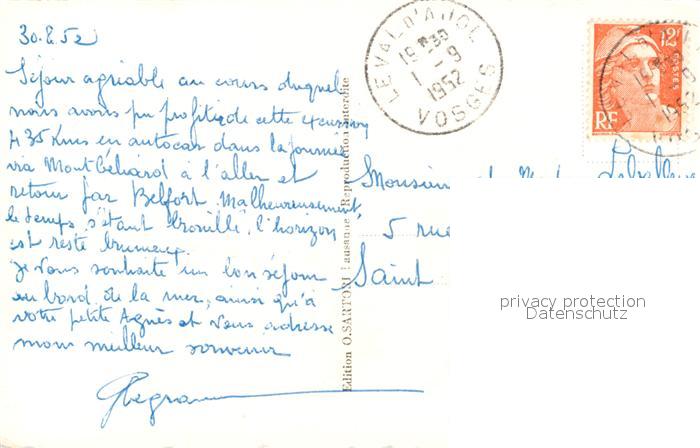 30.8.52
Séjour agréable au cours duquel
nous avons pu profiter de cette excursion
435 Kms en autocar dans la journée
via Montbéliard à l'aller et
retour par Belfort. Malheureusement,
le temps, s'étant brouillé, l'horizon
est resté brumeux.
Je vous souhaite un bon séjour
au bord de la mer, ainsi qu'à
votre petite Agnès et vous adresse
mon meilleur souvenir
Edition O. SARTORI Lausanne Reproduction interdite
LE VAL D'AJOL
19 H 30
1 - 9
1952
VOSGES
12F
POSTES
RF
1952
Monsieur et
5 rue
Saint
privacy protection
Datenschutz